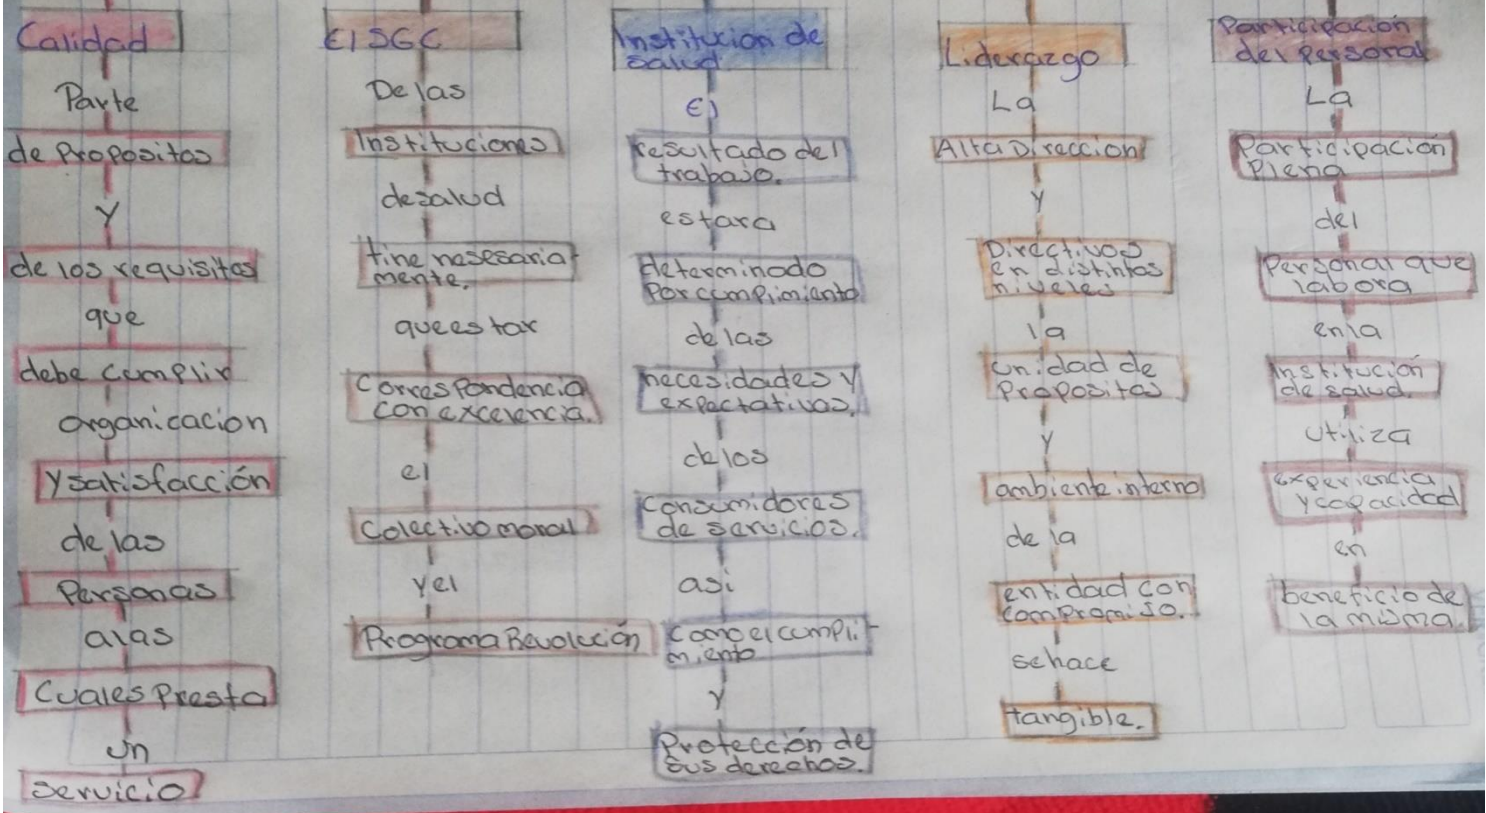 Calidad
Parte
de Propositos
Y
de los requisitos
que
debe cumplir
organicacion
y satisfacción
de las
Personas
alas
Cuales Presta
un
servicio
El SGC
De las
Instituciones
desalud
tine nesesaria
mente.
queestar
Correspondencia
con excelencia.
el
Colectivo moral
yel
Programa Revolución
Institucion de
salud.
El
resultado del
trabajo.
estara
determinado
Por cumplimiento
de las
necesidades y
expectativas.
delos
Consumidores
de servicios.
asi
Como el cumpli
miento
Y
Protección de
sus derechos.
Liderazgo
La
Alta Direccion
Y
Directivos
en distintos
niveles
la
unidad de
Propositos
Y
ambiente interno
de la
entidad con
compromiso.
sehace
tangible.
Participación
del Personal
La
Participación
Plena
del
Personal que
labora
enla
Institución
de salud.
Utiliza
experiencia
y capacidad
en
beneficio de
la misma.